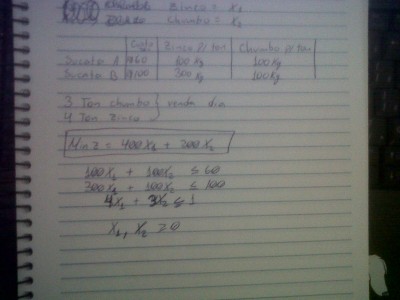 Zinco = X₁
Chumbo = X₂
Custo Zinco p/ ton Chumbo p/ ton
Sucata A 100 Kg 100 Kg
Sucata B 300 Kg 100 Kg
3 Ton chumbo } venda dia
4 Ton Zinco
Min Z = 400X₁ + 200X₂
100X₁ + 100X₂ ≤ 60
300X₁ + 100X₂ ≤ 100
4X₁ + 3X₂ ≤ 1
X₁, X₂ ≥ 0